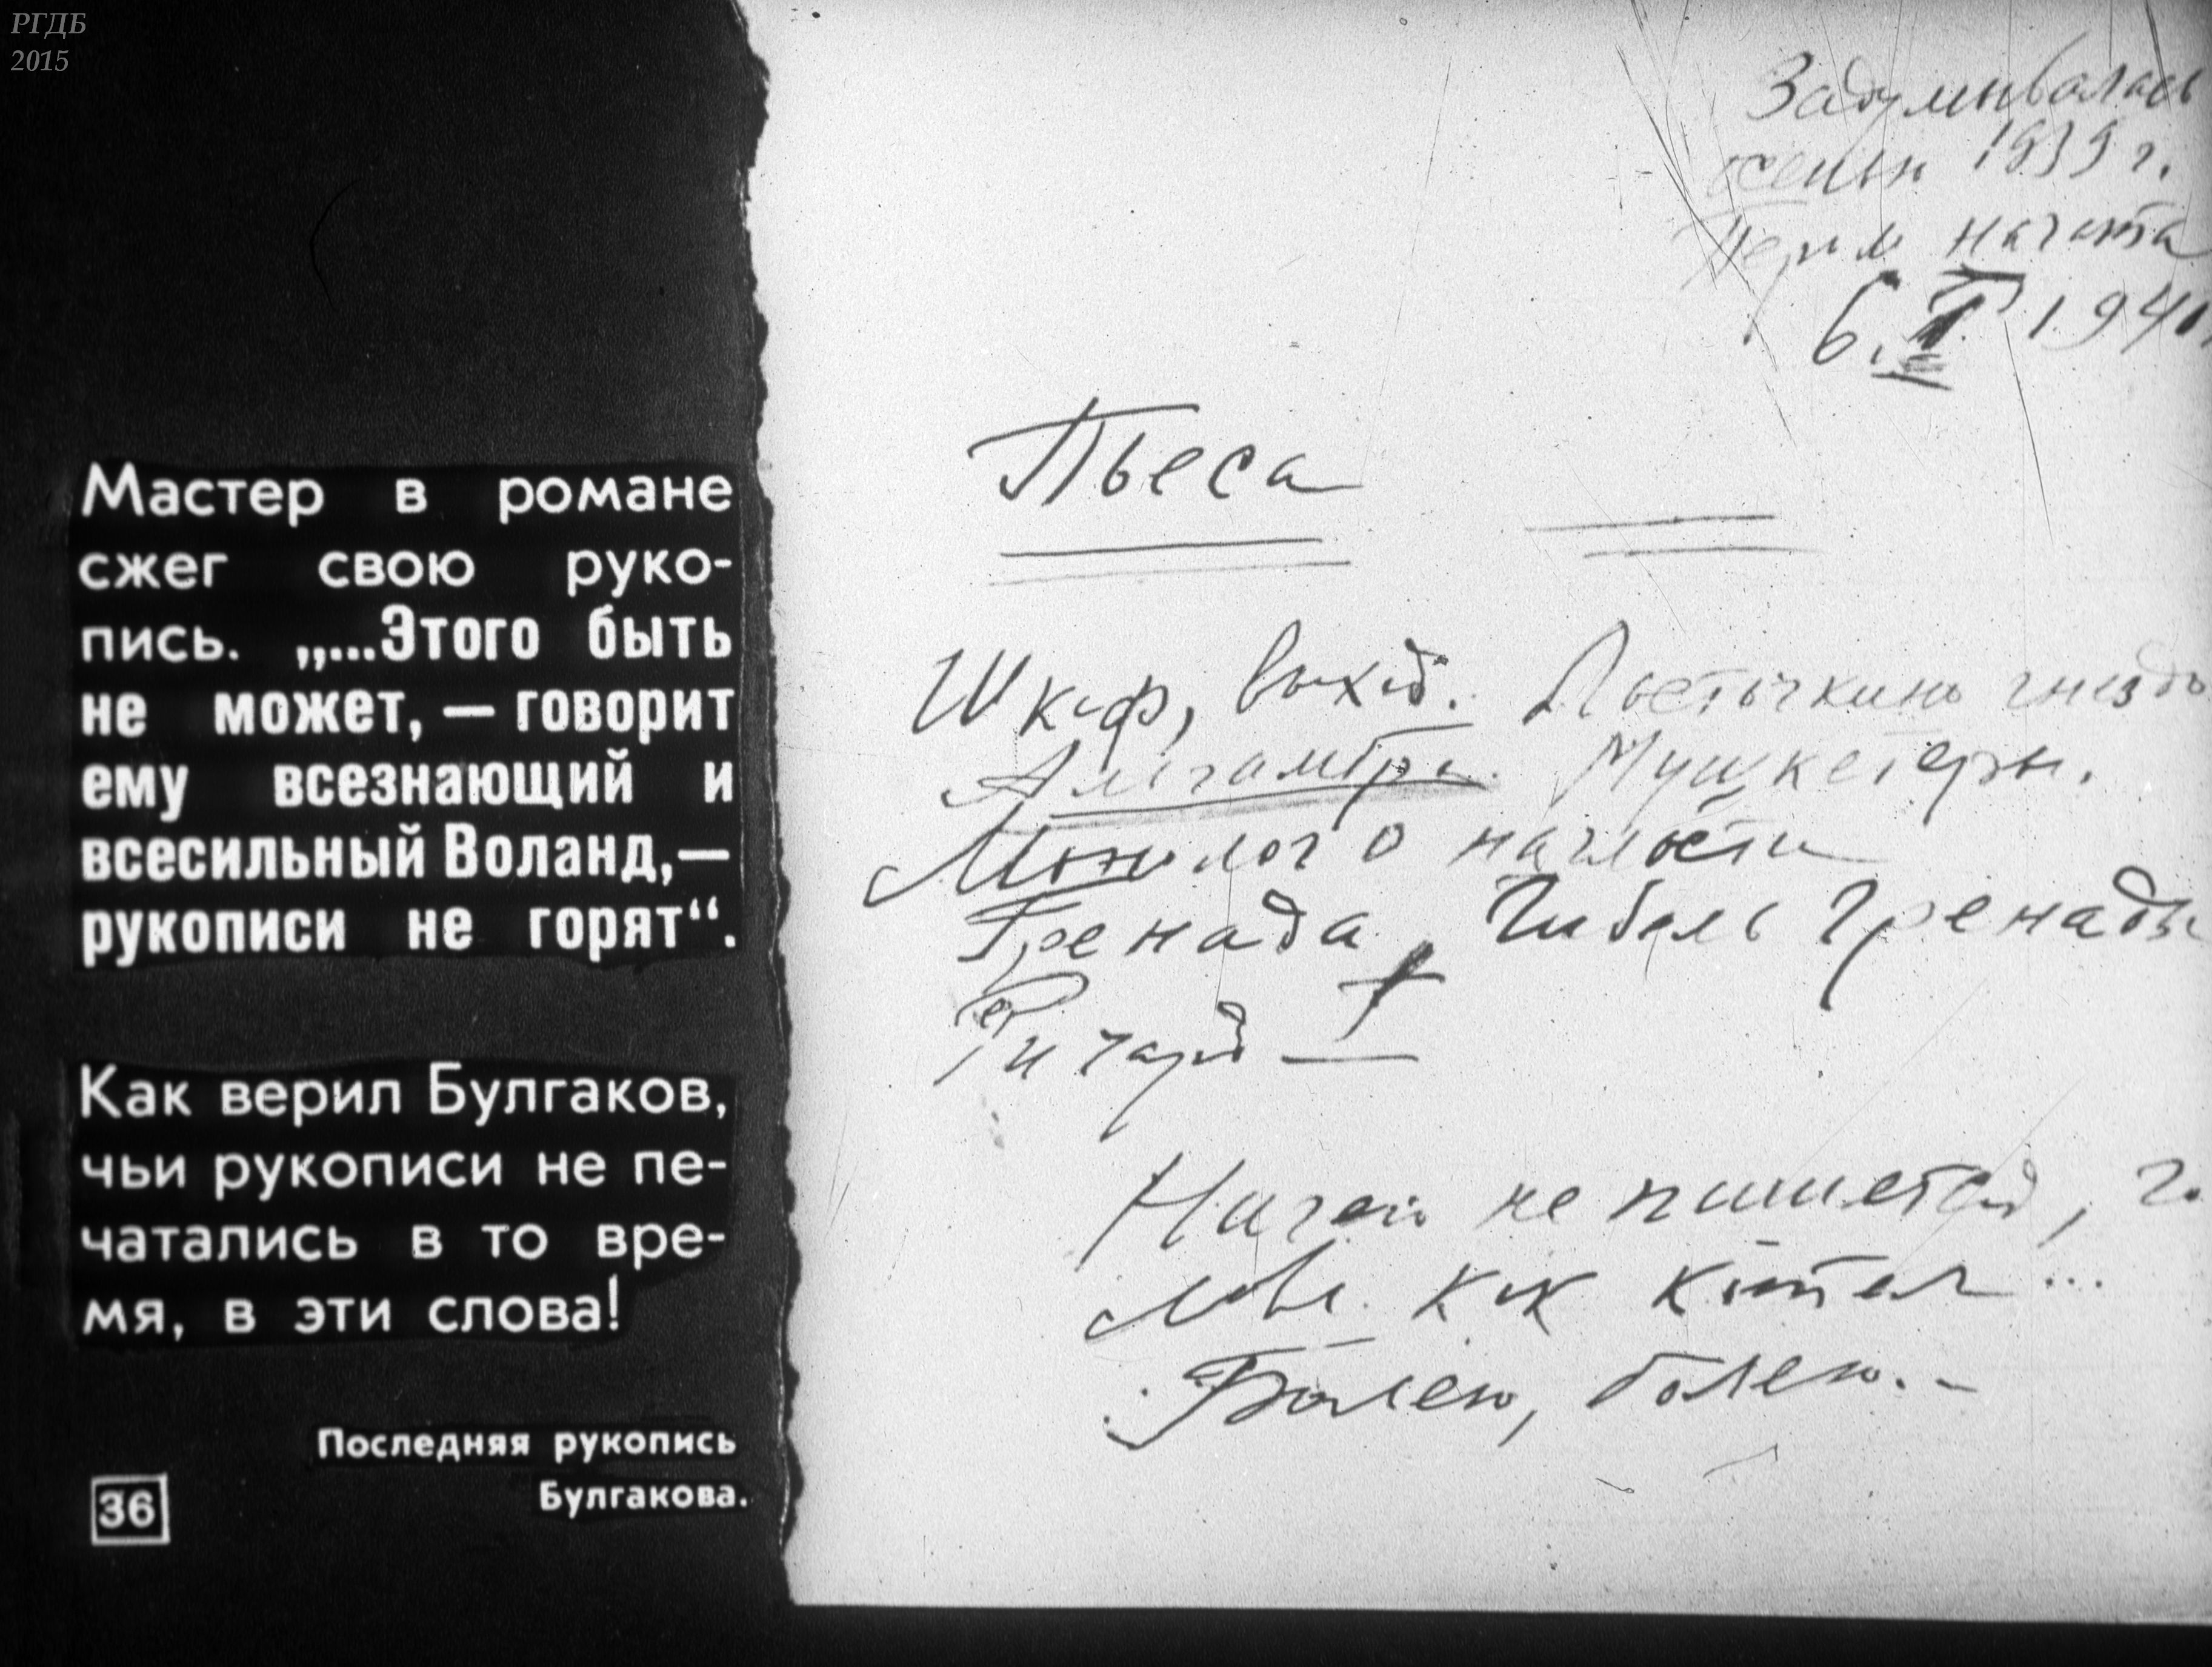 РГДБ
2015
Мастер в романе
сжег свою руко-
пись. „...Этого быть
не может, — говорит
ему всезнающий и
всесильный Воланд, —
рукописи не горят“.
Как верил Булгаков,
чьи рукописи не пе-
чатались в то вре-
мя, в эти слова!
Последняя рукопись
Булгакова.
36
Задумывалась
осенью 1939 г.
Пером начата
6. I. 1940
Пьеса
Шкаф, выход. Ласточкино гнездо
Альгамбра. Мушкетеры.
Монолог о наглости
Гренада, Гибель Гренады
Ричард I
Ничего не пишется, го
лова как котел...
Болею, болею.-